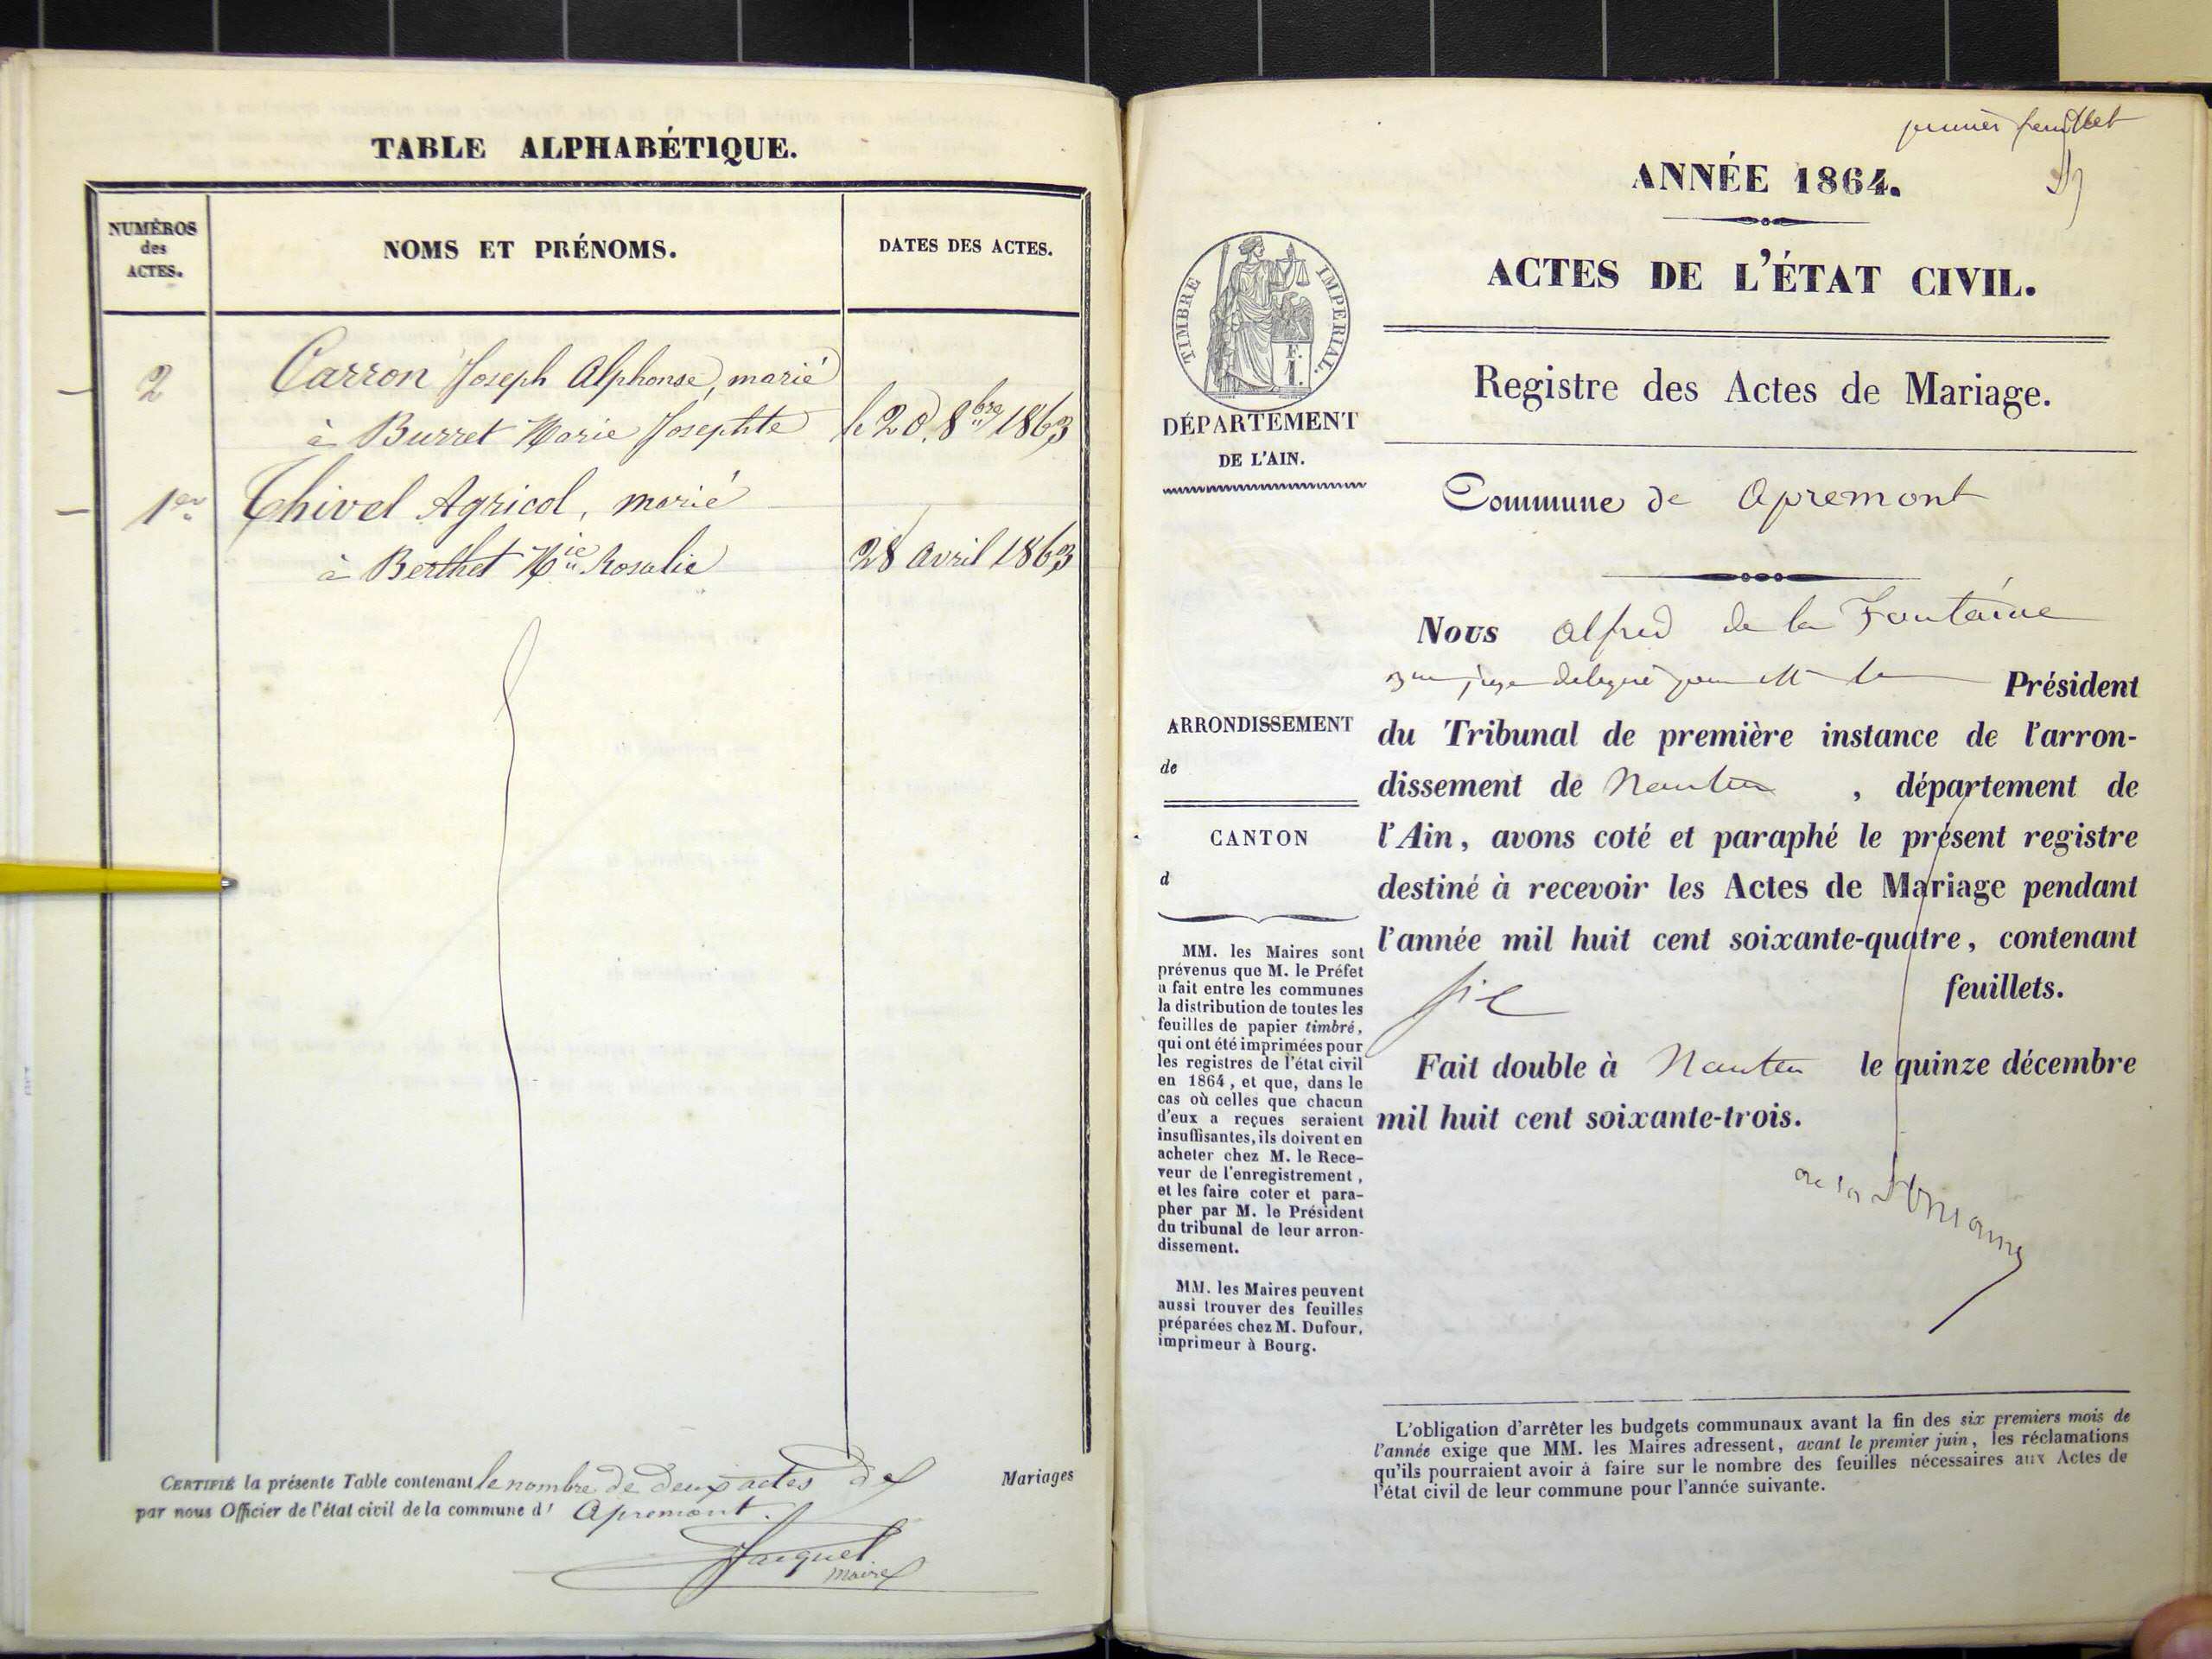 TABLE ALPHABÉTIQUE.
NUMÉROS
des
ACTES.
NOMS ET PRÉNOMS.
DATES DES ACTES.
2
Carron Joseph Alphonse, marié
à Burret Marie Josephte
le 20. 8bre 1863
1er
Thivel Agricol, marié
à Berthet Mie Rosalie
28 avril 1863
CERTIFIÉ la présente Table contenant le nombre de deux actes de Mariages
par nous Officier de l'état civil de la commune d' Apremont.
Jacquet
maire
premier feuillet
ANNÉE 1864.
ACTES DE L'ÉTAT CIVIL.
TIMBRE IMPÉRIAL.
F.
I.
DÉPARTEMENT
DE L'AIN.
Registre des Actes de Mariage.
Commune de Apremont
Nous Alfred de la Fontaine
juge délégué par M le Président
du Tribunal de première instance de l'arron-
dissement de Nantua , département de
l'Ain, avons coté et paraphé le présent registre
destiné à recevoir les Actes de Mariage pendant
l'année mil huit cent soixante-quatre, contenant
six feuillets.
Fait double à Nantua le quinze décembre
mil huit cent soixante-trois.
ARRONDISSEMENT
de
CANTON
d
MM. les Maires sont
prévenus que M. le Préfet
a fait entre les communes
la distribution de toutes les
feuilles de papier timbré,
qui ont été imprimées pour
les registres de l'état civil
en 1864, et que, dans le
cas où celles que chacun
d'eux a reçues seraient
insuffisantes, ils doivent en
acheter chez M. le Rece-
veur de l'enregistrement,
et les faire coter et para-
pher par M. le Président
du tribunal de leur arron-
dissement.
MM. les Maires peuvent
aussi trouver des feuilles
préparées chez M. Dufour,
imprimeur à Bourg.
L'obligation d'arrêter les budgets communaux avant la fin des six premiers mois de
l'année exige que MM. les Maires adressent, avant le premier juin, les réclamations
qu'ils pourraient avoir à faire sur le nombre des feuilles nécessaires aux Actes de
l'état civil de leur commune pour l'année suivante.